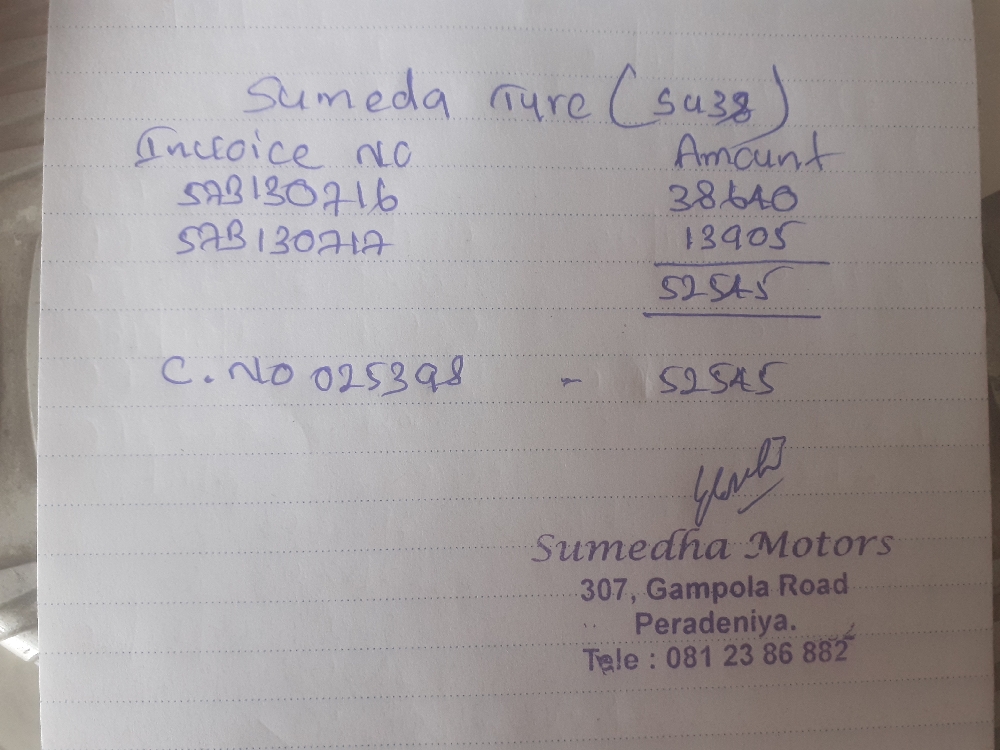 Sumeda Tyre (SU38)
Invoice No Amount
57B130716 38640
57B130717 13905
52545
C. No 025398 - 52545
Sumedha Motors
307, Gampola Road
Peradeniya.
Tele : 081 23 86 882